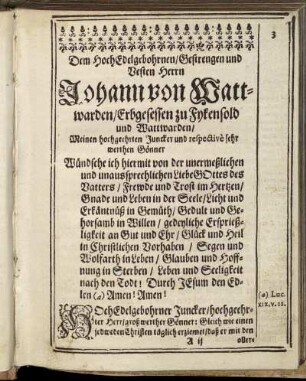 3
Dem HochEdelgebohrnen/Gestrengen und
Vesten Herrn
Johann von Watt-
warden/Erbgesessen zu Fykensold
und Wattwarden/
Meinen hochgeehrten Juncker und respectivè sehr
werthen Gönner
Wündsche ich hiermit von der unermeßlichen
und unaussprechlichen Liebe GOttes des
Vatters/Frewde und Trost im Hertzen/
Gnade und Leben in der Seele/Licht und
Erkäntnüß in Gemüth/Gedult und Ge-
horsamb in Willen/gedeyliche Ersprieß-
ligkeit an Gut und Ehr/Glück und Heil
in Christlichen Vorhaben/Segen und
Wolfarth in Leben/Glauben und Hoff-
nung in Sterben/Leben und Seeligkeit
nach den Todt; Durch JEsum den Ed-
len (a) Amen! Amen!
(a) Luc.
XIX.v.12.
HOchEdelgebohrner Juncker/hochgeehr-
ter Herr/groß werther Gönner: Gleich wie einen
jedweden Christen täglich erziemet/daß er mit den
A ij